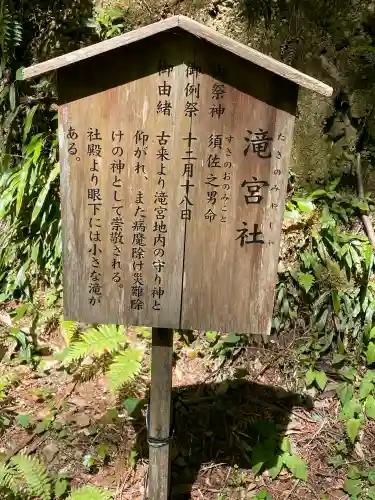 滝宮社
たきのみやしゃ
御祭神 須佐之男命
すさのおのみこと
御例祭 十二月十八日
御由緒 古来より滝宮地内の守り神と
仰がれ、また病魔除け災難除
けの神として崇敬される
社殿より眼下には小さな滝が
ある。